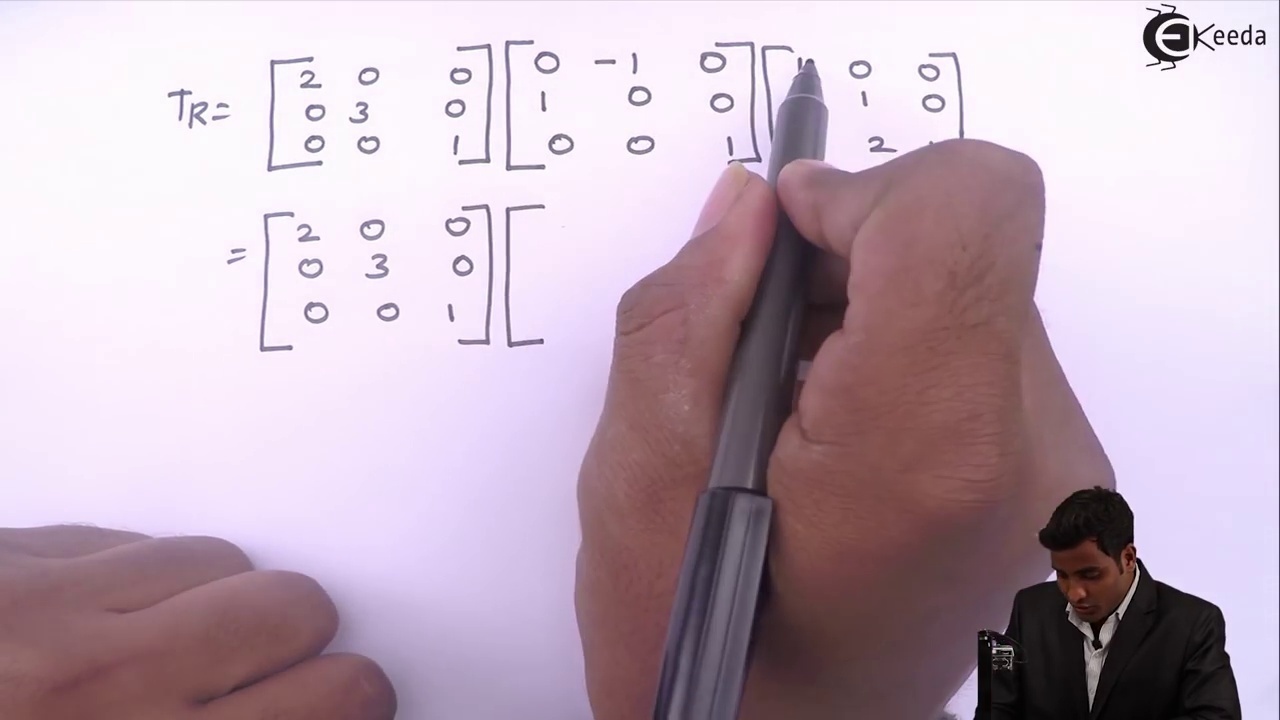 EKeeda
TR= [2 0 0] [0 -1 0] [1 0 0]
[0 3 0] [1 0 0] [1 0]
[0 0 1] [0 0 1] [2]
= [2 0 0] [
[0 3 0]
[0 0 1]